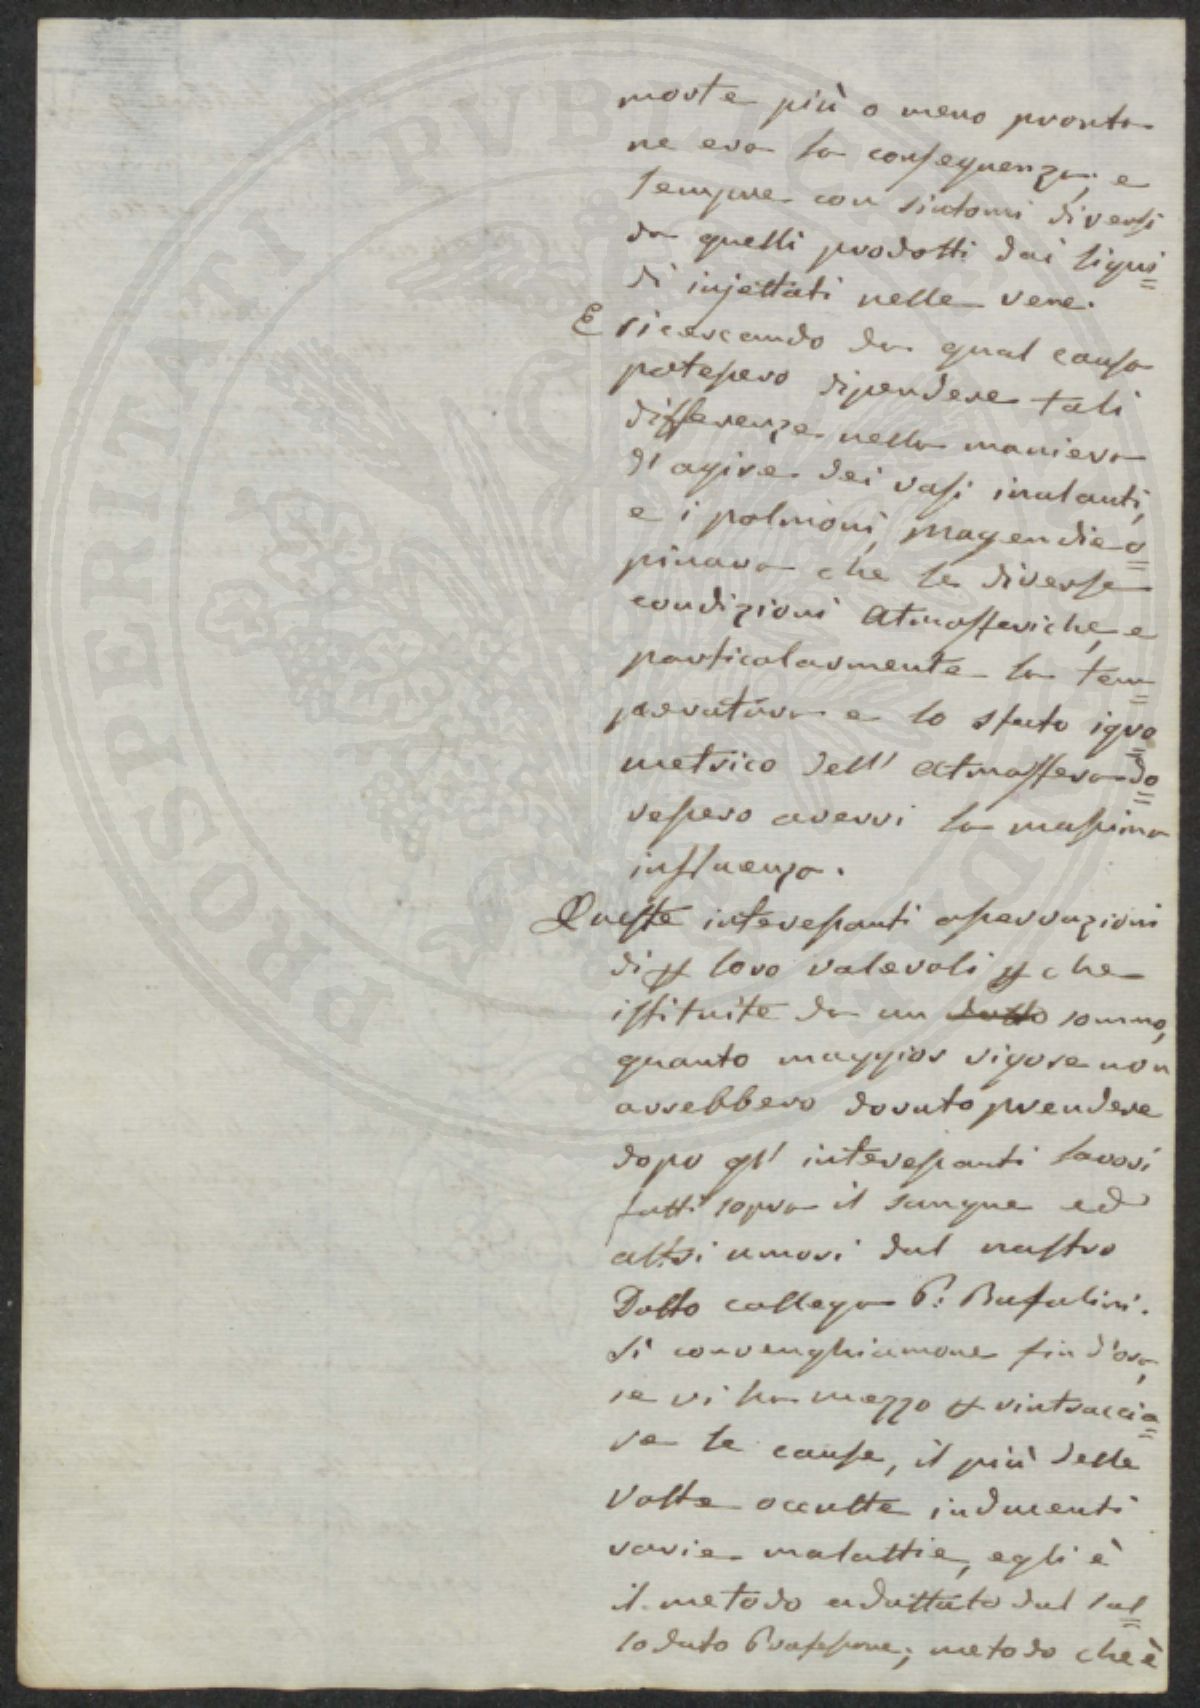 morte più o meno pronta
ne era la conseguenza; e
sempre con sintomi diversi
da quelli prodotti dai liqui=
di injettati nelle vene.
E ricercando da qual causa
potessero dipendere tali
differenze nella maniera
d'agire dei vasi inalanti,
e i polmoni, Magendie o=
pinava che le diverse
condizioni atmosferiche, e
particolarmente la tem=
peratura e lo stato igro=
metrico dell'atmosfera do=
vessero avervi la massima
influenza.
Queste interessanti osservazioni
di loro valevoli che
istituite da un dotto sommo,
quanto maggior vigore non
avrebbero dovuto prendere
dopo gl'interessanti lavori
fatti sopra il sangue ed
altri umori dal nostro
Dotto collega P: Bufalini.
Si convenghiamone fin d'ora,
se vi ha mezzo rintraccia=
re le cause, il più delle
volte occulte inducenti
varie malattie, egli è
il metodo adottato dal sul=
lodato Professore; metodo che è
PROSPERITATI PVBLICAE